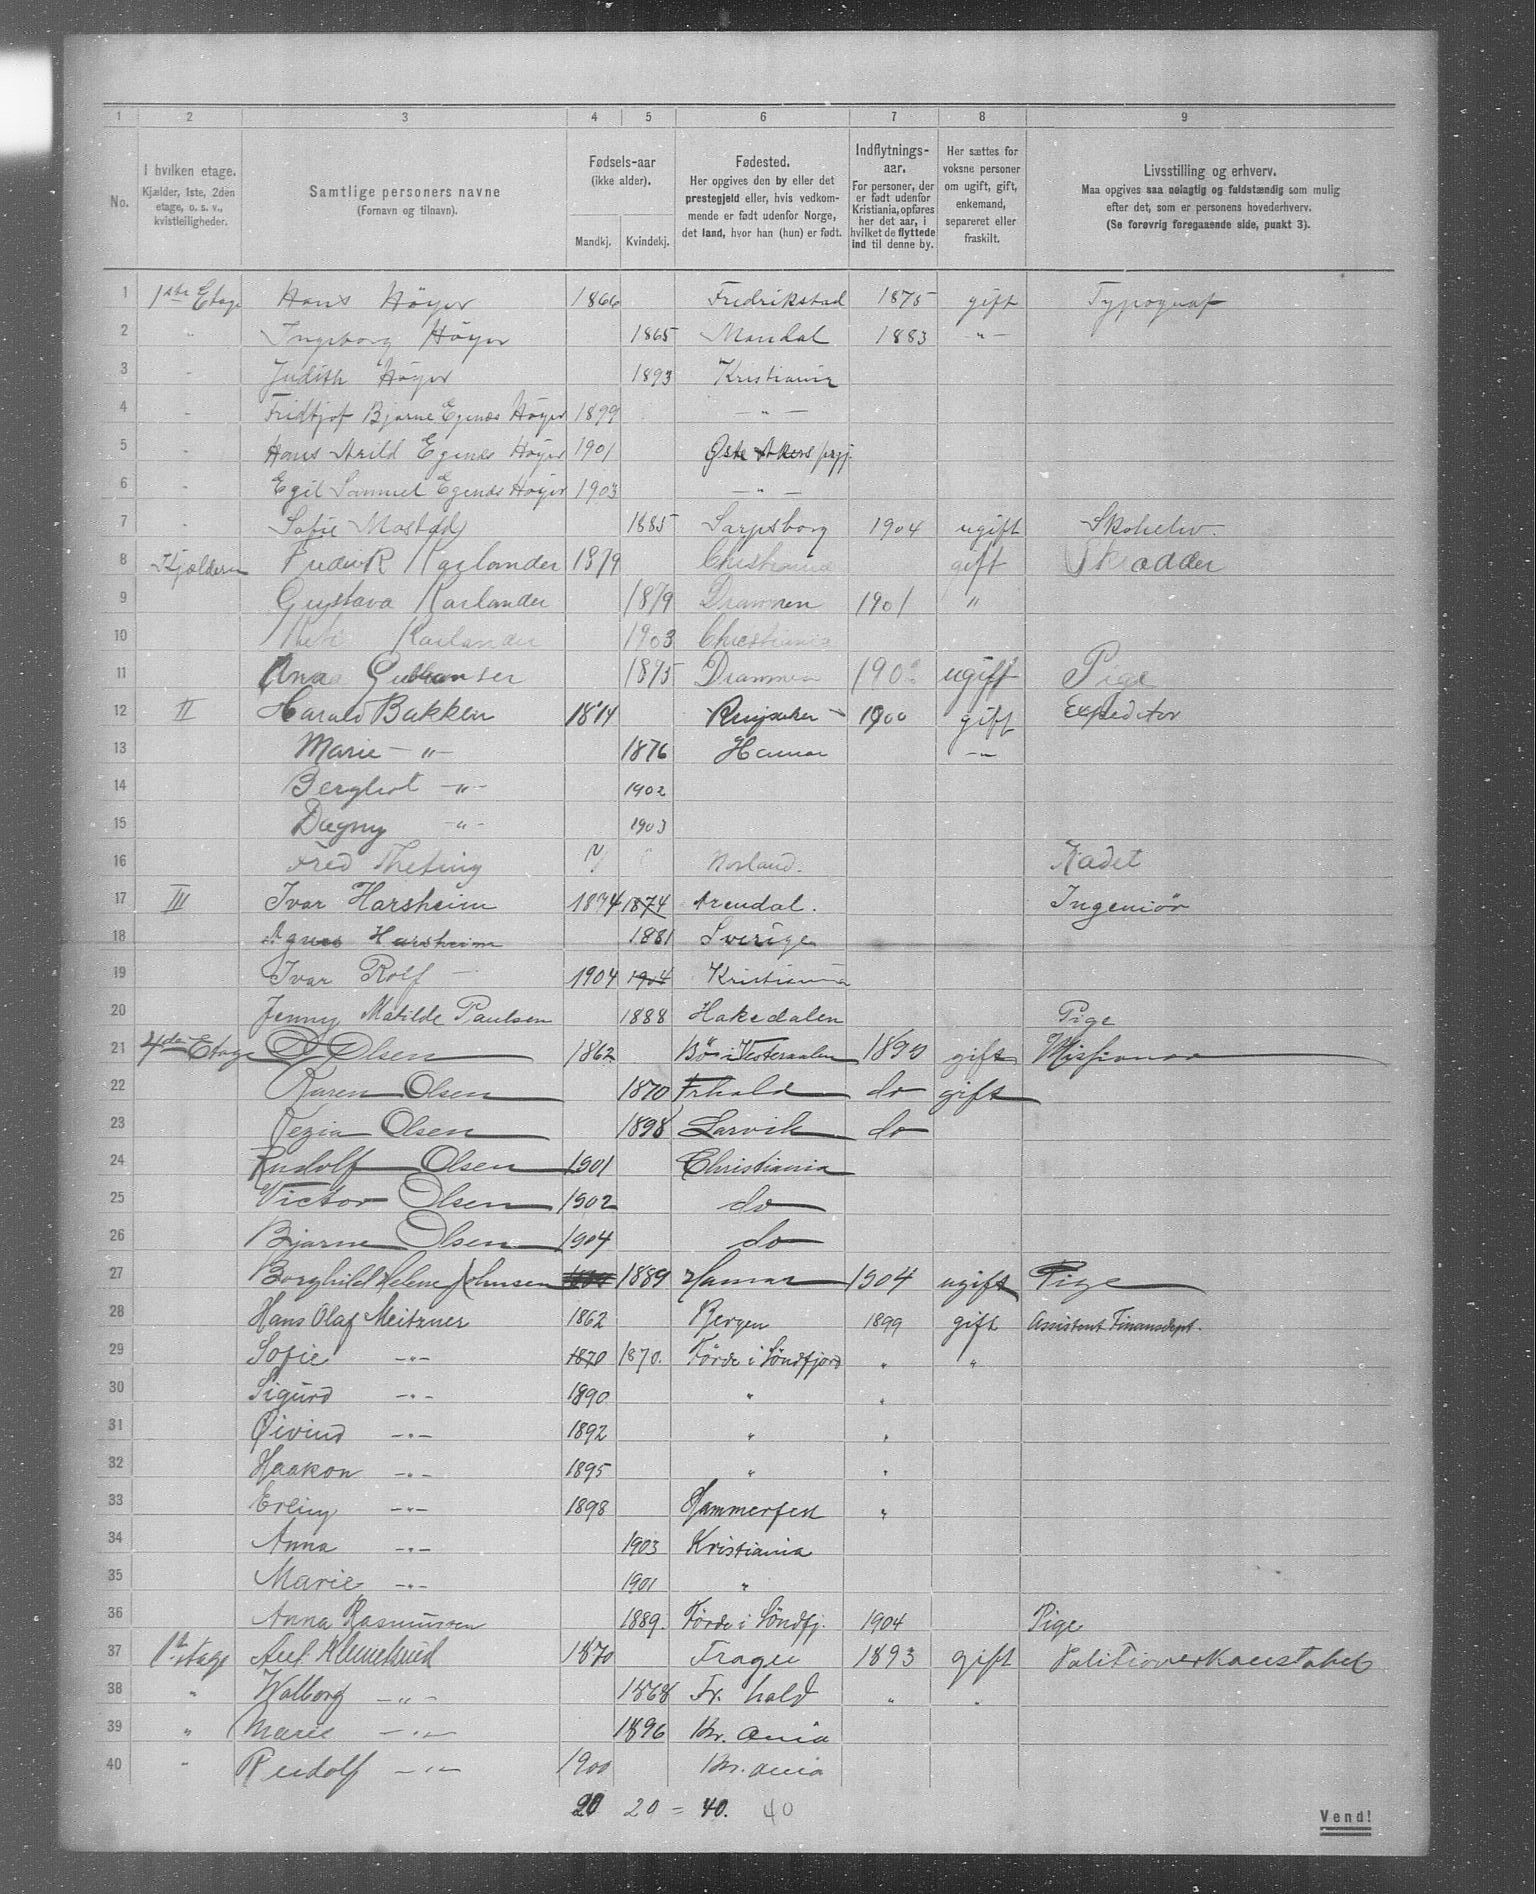 1 2 3 4 5 6 7 8 9
No.
I hvilken etage.
Kjælder, 1ste, 2den
etage, o. s. v.,
kvistleiligheder.
Samtlige personers navne
(Fornavn og tilnavn).
Fødsels-aar
(ikke alder).
Mandkj. Kvindekj.
Fødested.
Her opgives den by eller det
prestegjeld eller, hvis vedkom-
mende er født udenfor Norge,
det land, hvor han (hun) er født.
Indflytnings-
aar.
For personer, der
er født udenfor
Kristiania, opføres
her det aar, i
hvilket de flyttede
ind til denne by.
Her sættes for
voksne personer
om ugift, gift,
enkemand,
separeret eller
fraskilt.
Livsstilling og erhverv.
Maa opgives saa nøiagtig og fuldstændig som mulig
efter det, som er personens hovederhverv.
(Se forøvrig foregaaende side, punkt 3).
1 1ste Etage Hans Höyer 1866 Fredrikstad 1875 gift Typograf
2 " Ingeborg Höyer 1865 Mandal 1883 —"—
3 " Judith Höyer 1893 Kristiania
4 " Fridtjof Bjarne Egenes Höyer 1899 —"—
5 " Hans Arild Egenes Höyer 1901 Østre Akers prgj.
6 " Egil Samuel Egenes Höyer 1903 —"—
7 " Sofie Mostad 1885 Sarpsborg 1904 ugift
8 Kjælderen Fredrik Karlander 1879 Christiania gift Skrædder
9 Gustava Karlander 1879 Drammen 1901 "
10 Karlander 1903 Christiania
11 Anna 1895 Drammen ugift Pige
12 II Harald Bakken 1874 Ringsaker 1900 gift Expeditør
13 Marie —"— 1876 Hamar —"—
14 Bergliot —"— 1902
15 Dagny —"— 1903
16 Fred Theting ? Norland. Kadet
17 III Ivar Harsheim 1874 1874 Arendal. Ingeniör
18 Agnes Harsheim 1881 Sverige
19 Ivar Rolf — 1904 1904 Kristiania
20 Jenny Matilde Paulsen 1888 Hakedalen Pige
21 4de Etage O Olsen 1862 Bö i Vesteraalen 1899 gift Missionær
22 Karen Olsen 1870 Frhald do gift
23 Kezia Olsen 1898 Larvik do
24 Rudolf Olsen 1901 Christiania
25 Victor Olsen 1902 do
26 Bjarne Olsen 1904 do
27 Borghild Helene Johnsen 1889 Hamar 1904 ugift Pige
28 Hans Olaf Meitzner 1862 Bergen 1899 gift Assistent Finansdept.
29 Sofie —"— 1870 1870. Förde i Söndfjord " "
30 Sigurd —"— 1890 " "
31 Øivind —"— 1892 " "
32 Haakon —"— 1895 " "
33 Erling —"— 1898 Hammerfest "
34 Anna —"— 1903 Kristiania
35 Marie —"— 1901 "
36 Anna Rasmussen 1889. Förde i Söndfj. 1904 Pige
37 1ste etage 1870 1893 gift Politioverkonstabel
38 " Walborg —"— 1868 Fr. hald " "
39 " Marie —"— 1896 Kr. ania
40 " Rudolf —"— 1900 Kr. ania
20 20 = 40. 40
Vend!